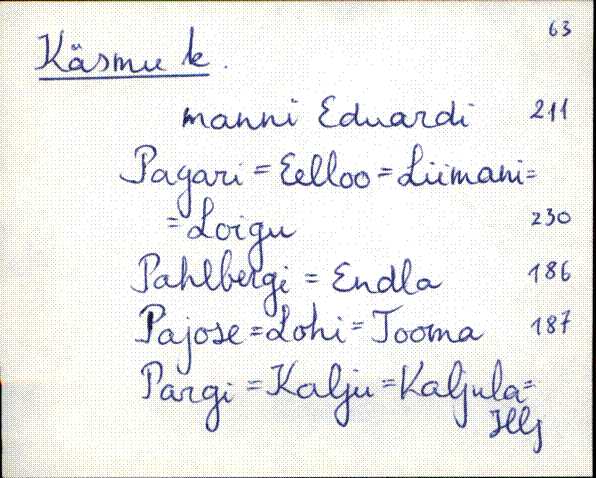 63
Käsmu k.
manni Eduardi 211
Pagari = Eelloo = Liimani =
= Loigu 230
Pahlbergi = Endla 186
Pajose = Lohi = Tooma 187
Pargi = Kalju = Kaljula =